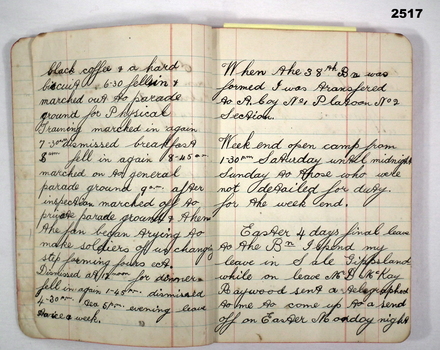 2517
black coffee & a hard
biscuit 6.30 fell in &
marched out to parade
ground for Physical
Training marched in again
7.30 am dismissed breakfast
8 am fell in again 8-45 am
marched on to general
parade ground 9 am after
inspection marched off to
private parade ground & then
the fun began trying to
make soldiers of us change
step forming fours ect.
Dismissed at 12 noon for dinner
fell in again 1-45 dismissed
4-30 Tea 5 evening leave
twice a week.
When the 38th Bn was
formed I was transfered
to A Coy No 1 Platoon No 2
Section.
Week end open camp from
1-30 am Saturday until midnight
Sunday to those who were
not detailed for duty
for the week end.
Easter 4 days final leave
to the Bn I spend my
leave in Sale Gippsland
while on leave Mr McKay
Raywood sent a telegraphed
to me to come up to a send
off on Easter Monday night